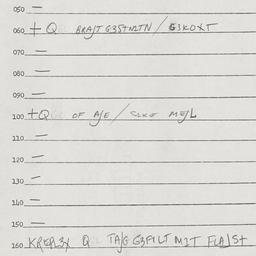 050 —
060 + Q BRAJT G3STNITN / G3KOXT
070 —
080 —
090 —
100 + Q OF AJE / CLKE MEJL
110 —
120 —
130 —
140 —
150 —
160 Q TAJG G3FILT M2T FLAJST